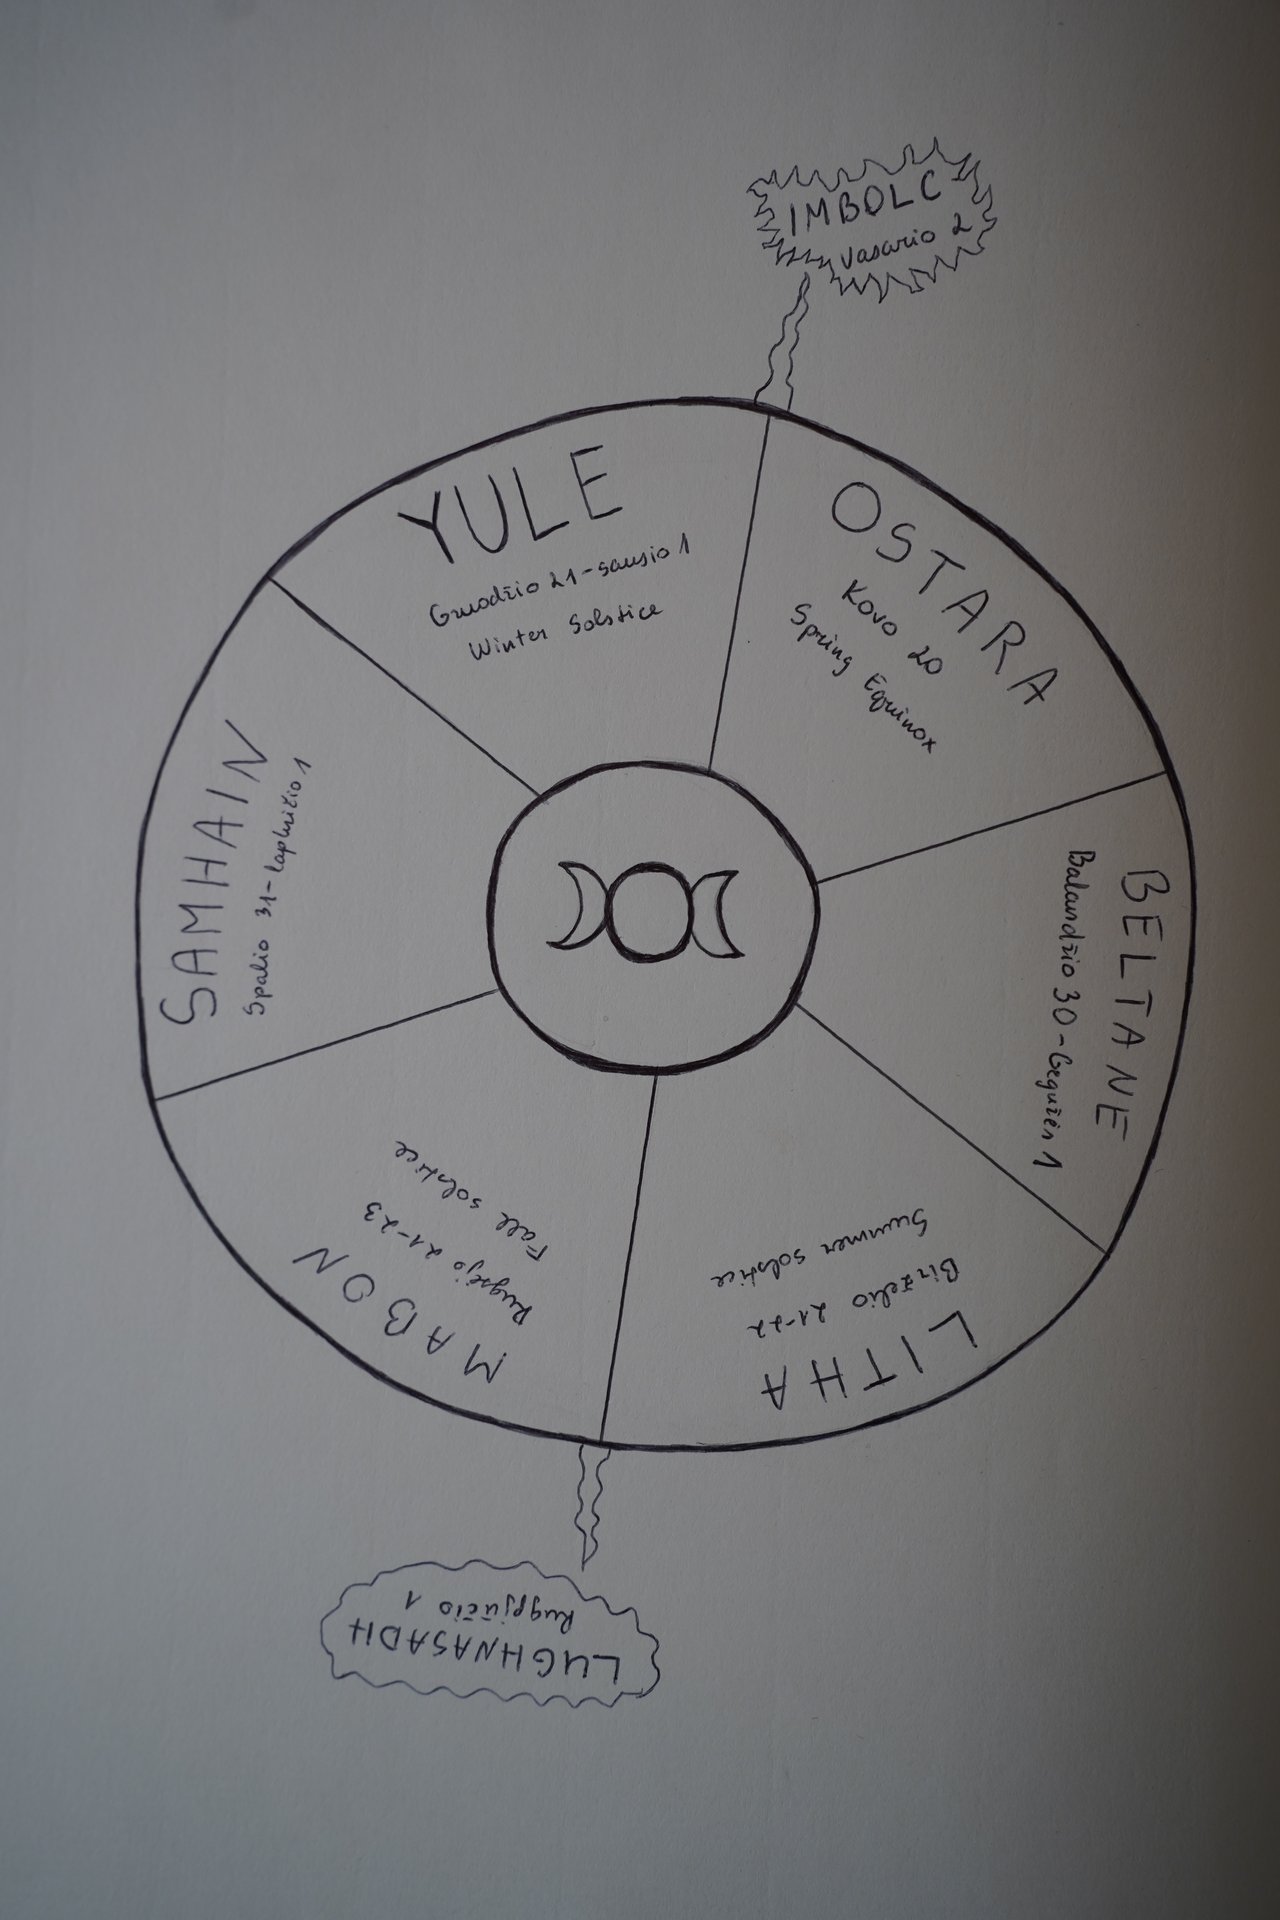 IMBOLC
Vasario 2
YULE
Gruodžio 21-sausio 1
Winter Solstice
OSTARA
Kovo 20
Spring Equinox
BELTANE
Balandžio 30-Gegužės 1
LITHA
Birželio 21-22
Summer solstice
MABON
Rugsėjo 21-23
Fall solstice
SAMHAIN
Spalio 31-lapkričio 1
LUGHNASADH
Rugpjūčio 1